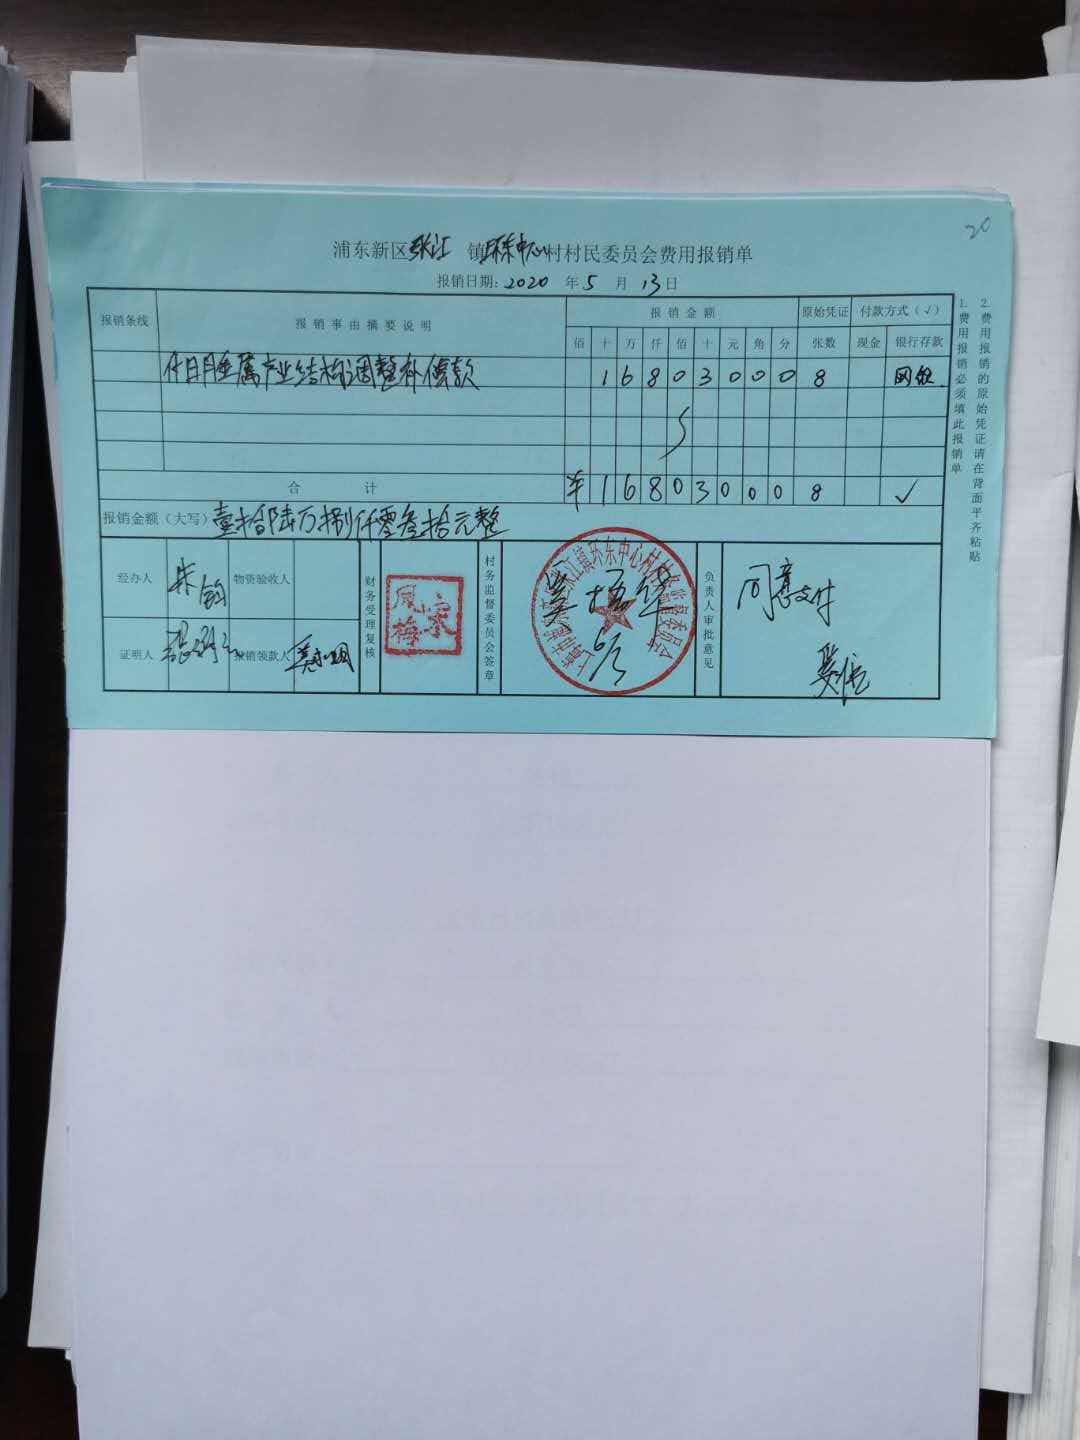 20
浦东新区张江 镇环东中心村村民委员会费用报销单
报销日期: 2020 年 5 月 13 日
报销条线 报销事由摘要说明 报销金额 原始凭证 付款方式(√)
佰 十 万 仟 佰 十 元 角 分 张数 现金 银行存款
付日月金属产业结构调整补偿款 1 6 8 0 3 0 0 0 8 网银
合计 ¥ 1 6 8 0 3 0 0 0 8 √
报销金额(大写) 壹拾陆万捌仟零叁拾元整
经办人 朱 物资验收人
证明人 报销领款人
财务受理复核
周梅宋
村务监督委员会签章
上海市浦东新区张江镇环东中心村村务监督委员会
负责人审批意见
同意支付
1.费用报销必须填此报销单
2.费用报销的原始凭证请在背面平齐粘贴